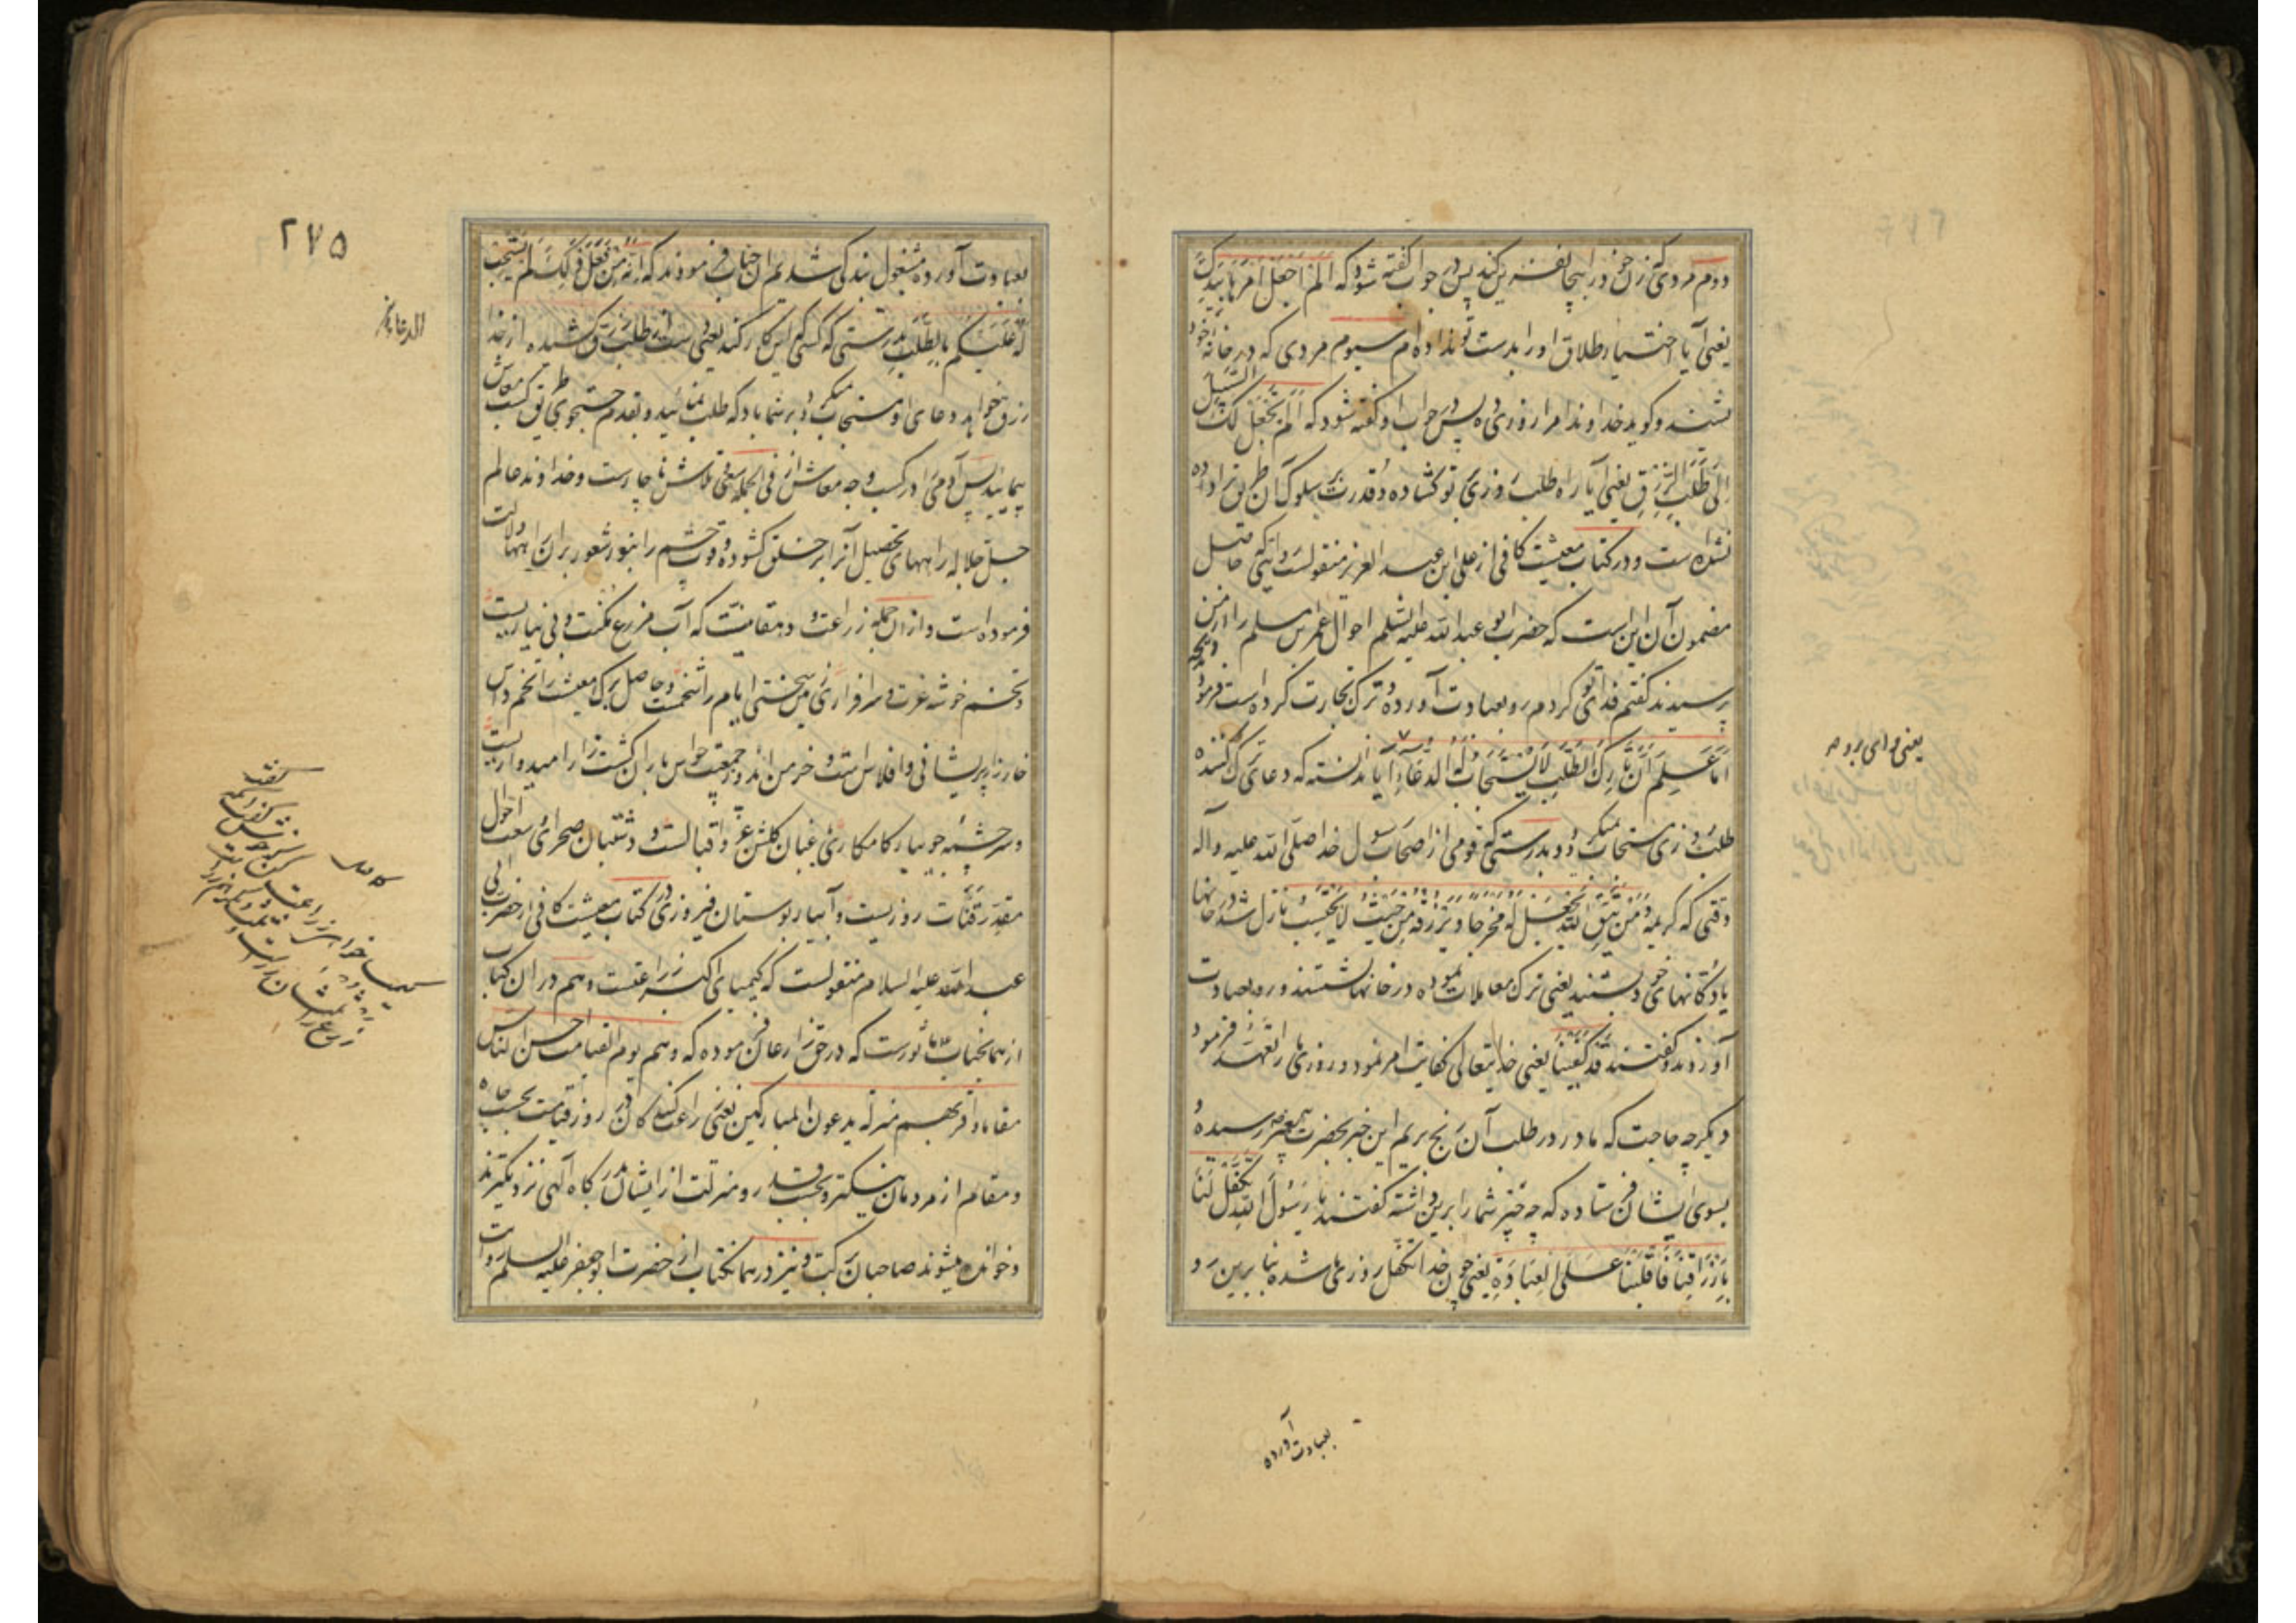 دوم مردی که زن خود را بیجا نفرین کند پس در جواب گفته شود که الم اجعل امرها بیدک
یعنی آیا اختیار طلاق او را بدست تو نداده‌ام سیوم مردی که در خانه خود
نشیند و گوید خداوندا مرا روزی ده پس در جواب او گفته شود که الم نجعل لک السبیل
الی طلب الرزق یعنی آیا راه طلب روزی بر تو گشاده و قدرت بر سلوک آن طریق ترا داده
نشده است و در کتاب معیشت کافی از علی ابن عبد العزیز منقولست روایتی که حاصل
مضمون آن این است که حضرت ابو عبد الله علیه السلم احوال عمر بن مسلم را از من
پرسیدند گفتم فدای تو گردم رو بعبادت آورده و ترک تجارت کرده است فرمود ویحه
اما علم ان تارک الطلب لا یستجاب له الدعاء آیا ندانسته که دعای ترک کننده
طلب روزی مستجاب نمیگردد و بدرستی که قومی از اصحاب رسول خدا صلی الله علیه و آله
وقتی که کریمه و من یتق الله یجعل له مخرجا و یرزقه من حیث لا یحتسب نازل شد در خانها
یا دکانهای خود بستند یعنی ترک معاملات نموده در خانها نشستند و رو بعبادت
آوردند و گفتند قد کفینا یعنی خدایتعالی کفایت امر نمود و روزی ما را تعهد فرمود
دیگر چه حاجت که ما در طلب آن رنج بریم این خبر بحضرت پیغمبر رسیده
بسوی ایشان فرستاده که چه چیز شما را برین داشته گفتند یا رسول الله تکفل لنا
بارزاقنا فاقبلنا علی العبادة یعنی چون خدا متکفل روزی ما شده بنا برین رو
یعنی وای بر وی
بعبادت آورده
۲۷۵
بعبادت آورده مشغول بندگی شدیم آن جناب فرمودند که انه من فعل ذلک لم یستجب
له علیکم بالطلب بدرستی که کسی که این کار کند یعنی دست از طلب رزق کشیده از خدا
رزق خواهد دعای او مستجاب نمیگردد بر شما باد که طلب نمائید و بقدم جستجوی طریق کسب معاش
پیمائید پس آدمی را در کسب وجه معاش از فی الجمله سعی و تلاش ناچارست و خداوند عالم
جل جلاله راههای تحصیل آنرا بر خلق گشوده و قوت چشم را بنور شعور بر آن راهها دلالت
فرموده است و از آن جمله زراعت و دهقانیست که آب مزرع مکنت و بی نیازیست
و تخم خوشه عزت و سرافرازی سختی ایام را شخمست و حاصل برگ معیشت را تخم و داس
خارزار پریشانی و افلاس است و خرمن اندوز جمعیت حواس باران کشت زار امیدواریست
و سر چشمه جویبار کامکاری باغبان گلشن عز و اقبالست و دشتبان صحرای وسعت احوال
مقدر قنات روزیست و آبیار بوستان فیروزی در کتاب معیشت کافی از حضرت ابی
عبد الله علیه السلام منقولست که کیمیای اکبر زراعتست و هم در آن کتاب
از همان جناب ماثورست که در حق زارعان فرموده که و هم یوم القیامه احسن الناس
مقاما و اقربهم منزلة یدعون المبارکین یعنی زراعت کنندگان در روز قیامت بحسب جاه
و مقام از مردمان نیکتر و بحسب قدر و منزلت از ایشان بدرگاه الهی نزدیکترند
و خوانده میشوند صاحبان برکت و نیز در همان کتاب از حضرت ابو جعفر علیه السلم روایت
الدعا